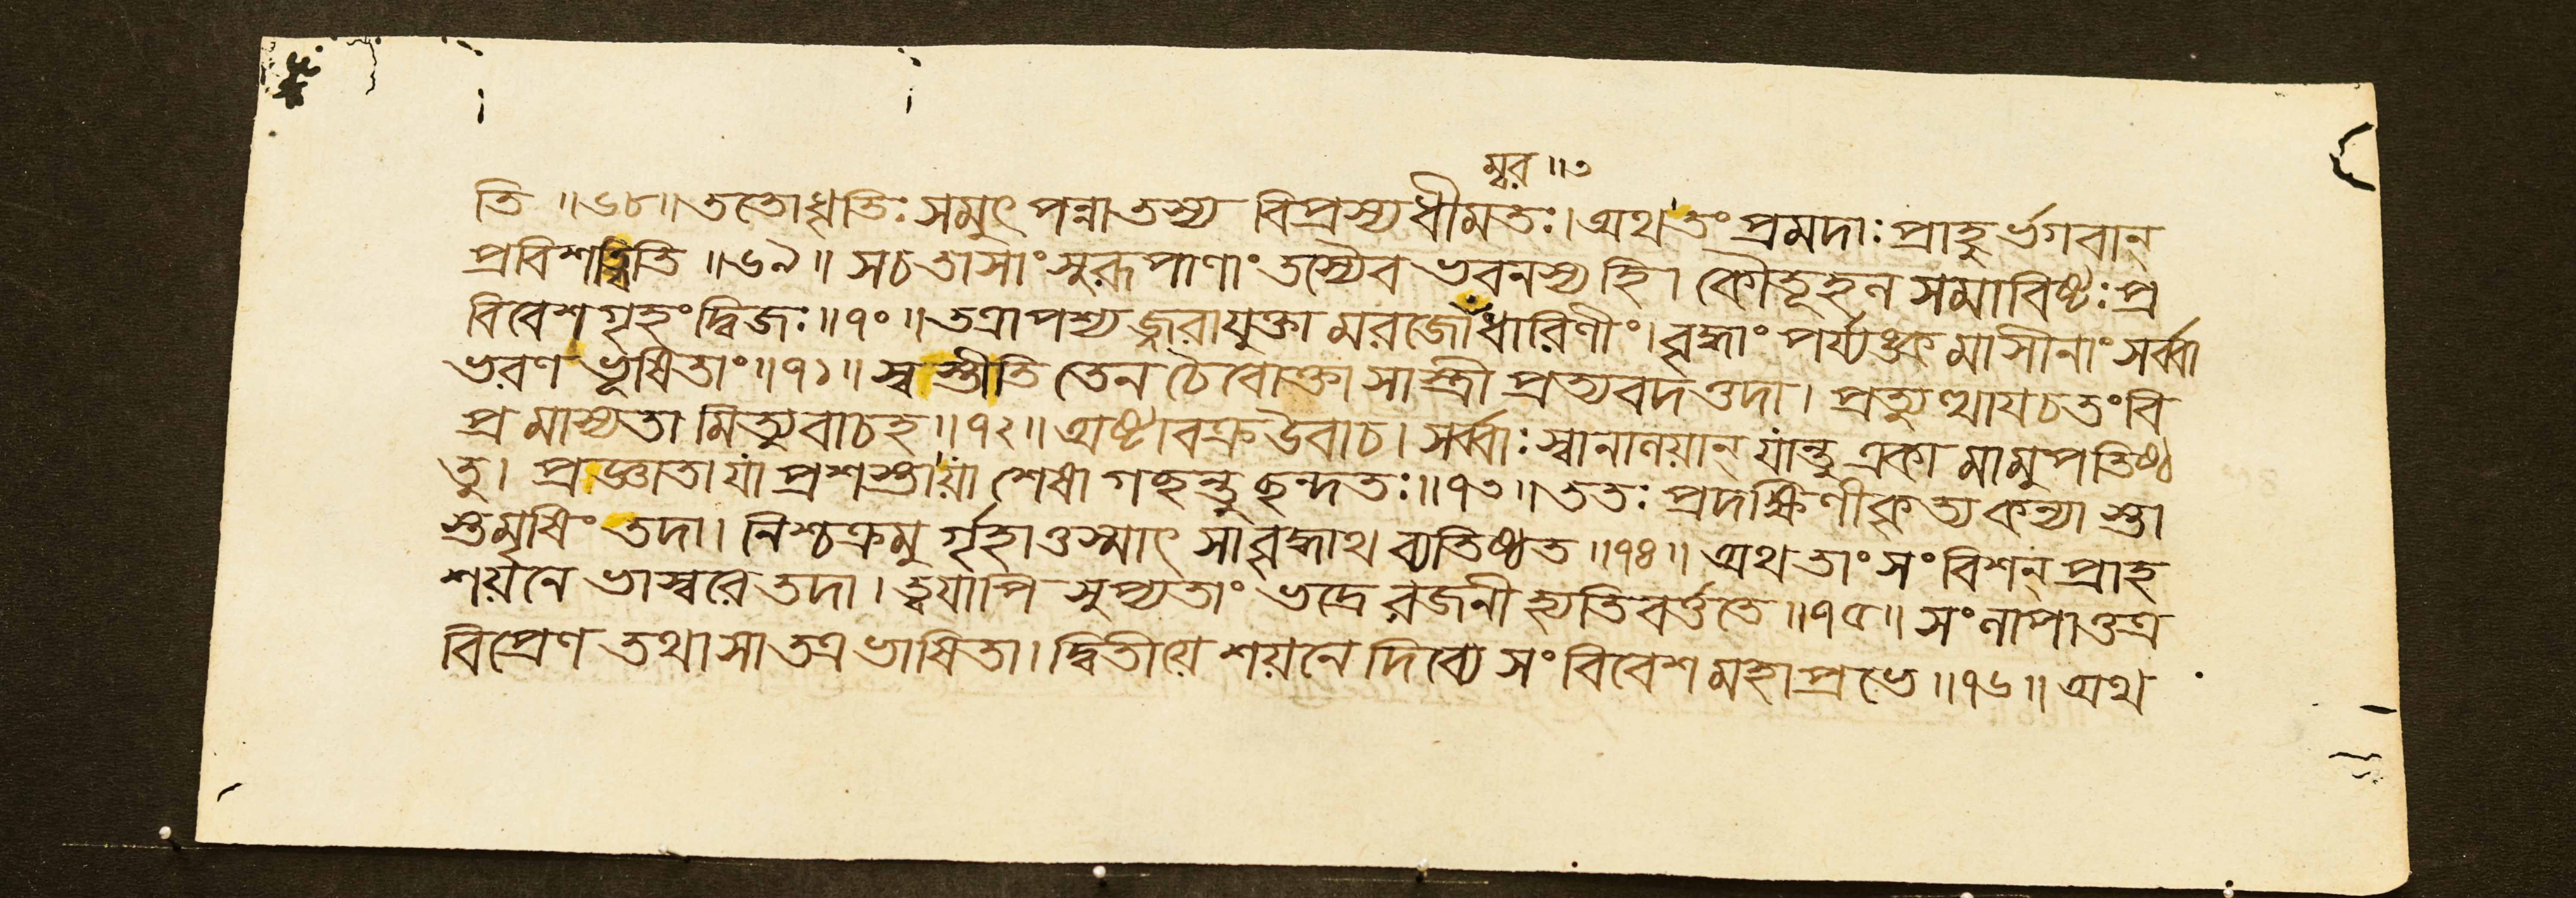 ম্বর ॥৩
তি ॥৬৮॥ ততোধৃতিঃ সমুৎ পন্না তস্য বিপ্রস্য ধীমতঃ। অথ তং প্রমদাঃ প্রাহু র্ভগবান্
প্রবিশত্বিতি ॥৬৯॥ স চ তাসাং সুরূপাণাং তস্যৈব ভবনস্য হি। কৌতূহল সমাবিষ্টঃ প্র
বিবেশ গৃহং দ্বিজঃ॥৭০॥ তত্রাপশ্য জ্জরাযুক্তা মরজো ধারিণীং। বৃদ্ধাং পর্য্যঙ্ক মাসীনাং সর্ব্বা
ভরণ ভূষিতাং॥৭১॥ স্ব স্তীতি তেন চৈবোক্তা সা স্ত্রী প্রত্যবদত্তদা। প্রত্যু ত্থায চ তং বি
প্র মাস্যতা মিত্যুবাচ হ॥৭২॥ অষ্টাবক্র উবাচ। সর্ব্বাঃ স্বানালয়ান্ যান্তু একা মামুপতিষ্ঠ
তু। প্রজ্ঞাতা যা প্রশস্তা যা শেষা গচ্ছন্তু ছন্দতঃ॥৭৩॥ ততঃ প্রদক্ষিণীকৃত্য কন্যা স্তা
স্তমৃষিং তদা। নিশ্চক্রমু র্গৃহাত্তস্মাৎ সা বৃদ্ধাথ ব্যতিষ্ঠত ॥৭৪॥ অথ তাং সংবিশন্ প্রাহ
শয়নে ভাস্বরে তদা। ত্বযাপি সুপ্যতাং ভদ্রে রজনী হ্যতিবর্ত্ততে॥৭৫॥ সংলাপাত্তত্র
বিপ্রেণ তথা সা তত্র ভাষিতা। দ্বিতীয়ে শয়নে দিব্যে সংবিবেশ মহাপ্রভে॥৭৬॥ অথ